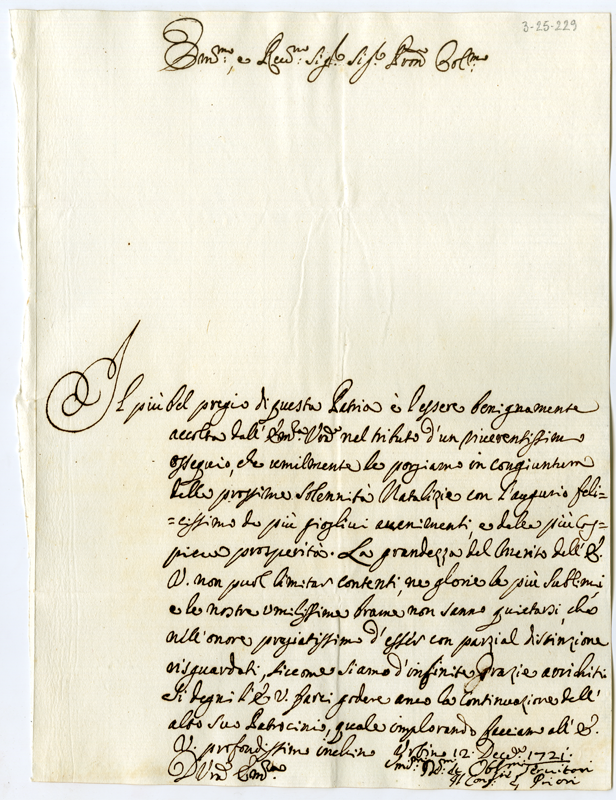 3-25-229
Em.mo e Rev.mo Sig.r Sig.r Pron Col.mo
Il più bel pregio di questa Patria è l'essere benignamente
accolta dall'Em.a V.ra nel tributo d'un riverentissimo
ossequio, che umilmente le porgiamo in congiuntura
delle prossime solennità Natalizie con l'augurio feli=
=cissimo de più giolivi avvenimenti, e delle più com=
piene prosperità. La grandezza del merito dell'E.
V. non puol limitar contenti, ne glorie le più sublimi
e le nostre umilissime brame non sanno quietarsi, che
nell'onore pregiatissimo d'esser con parzial distinzione
risguardati, siccome siamo d'infinite grazie arrichiti
Si degni l'E. V. farci godere anco la continuazione dell'
alto suo Patrocinio, quale implorando facciamo all'E.
V. profondissimo inchino Urbino 12 Decem 1721
D V.ra Em.za Obl.mi Servitori
Il Conf.re e Priori